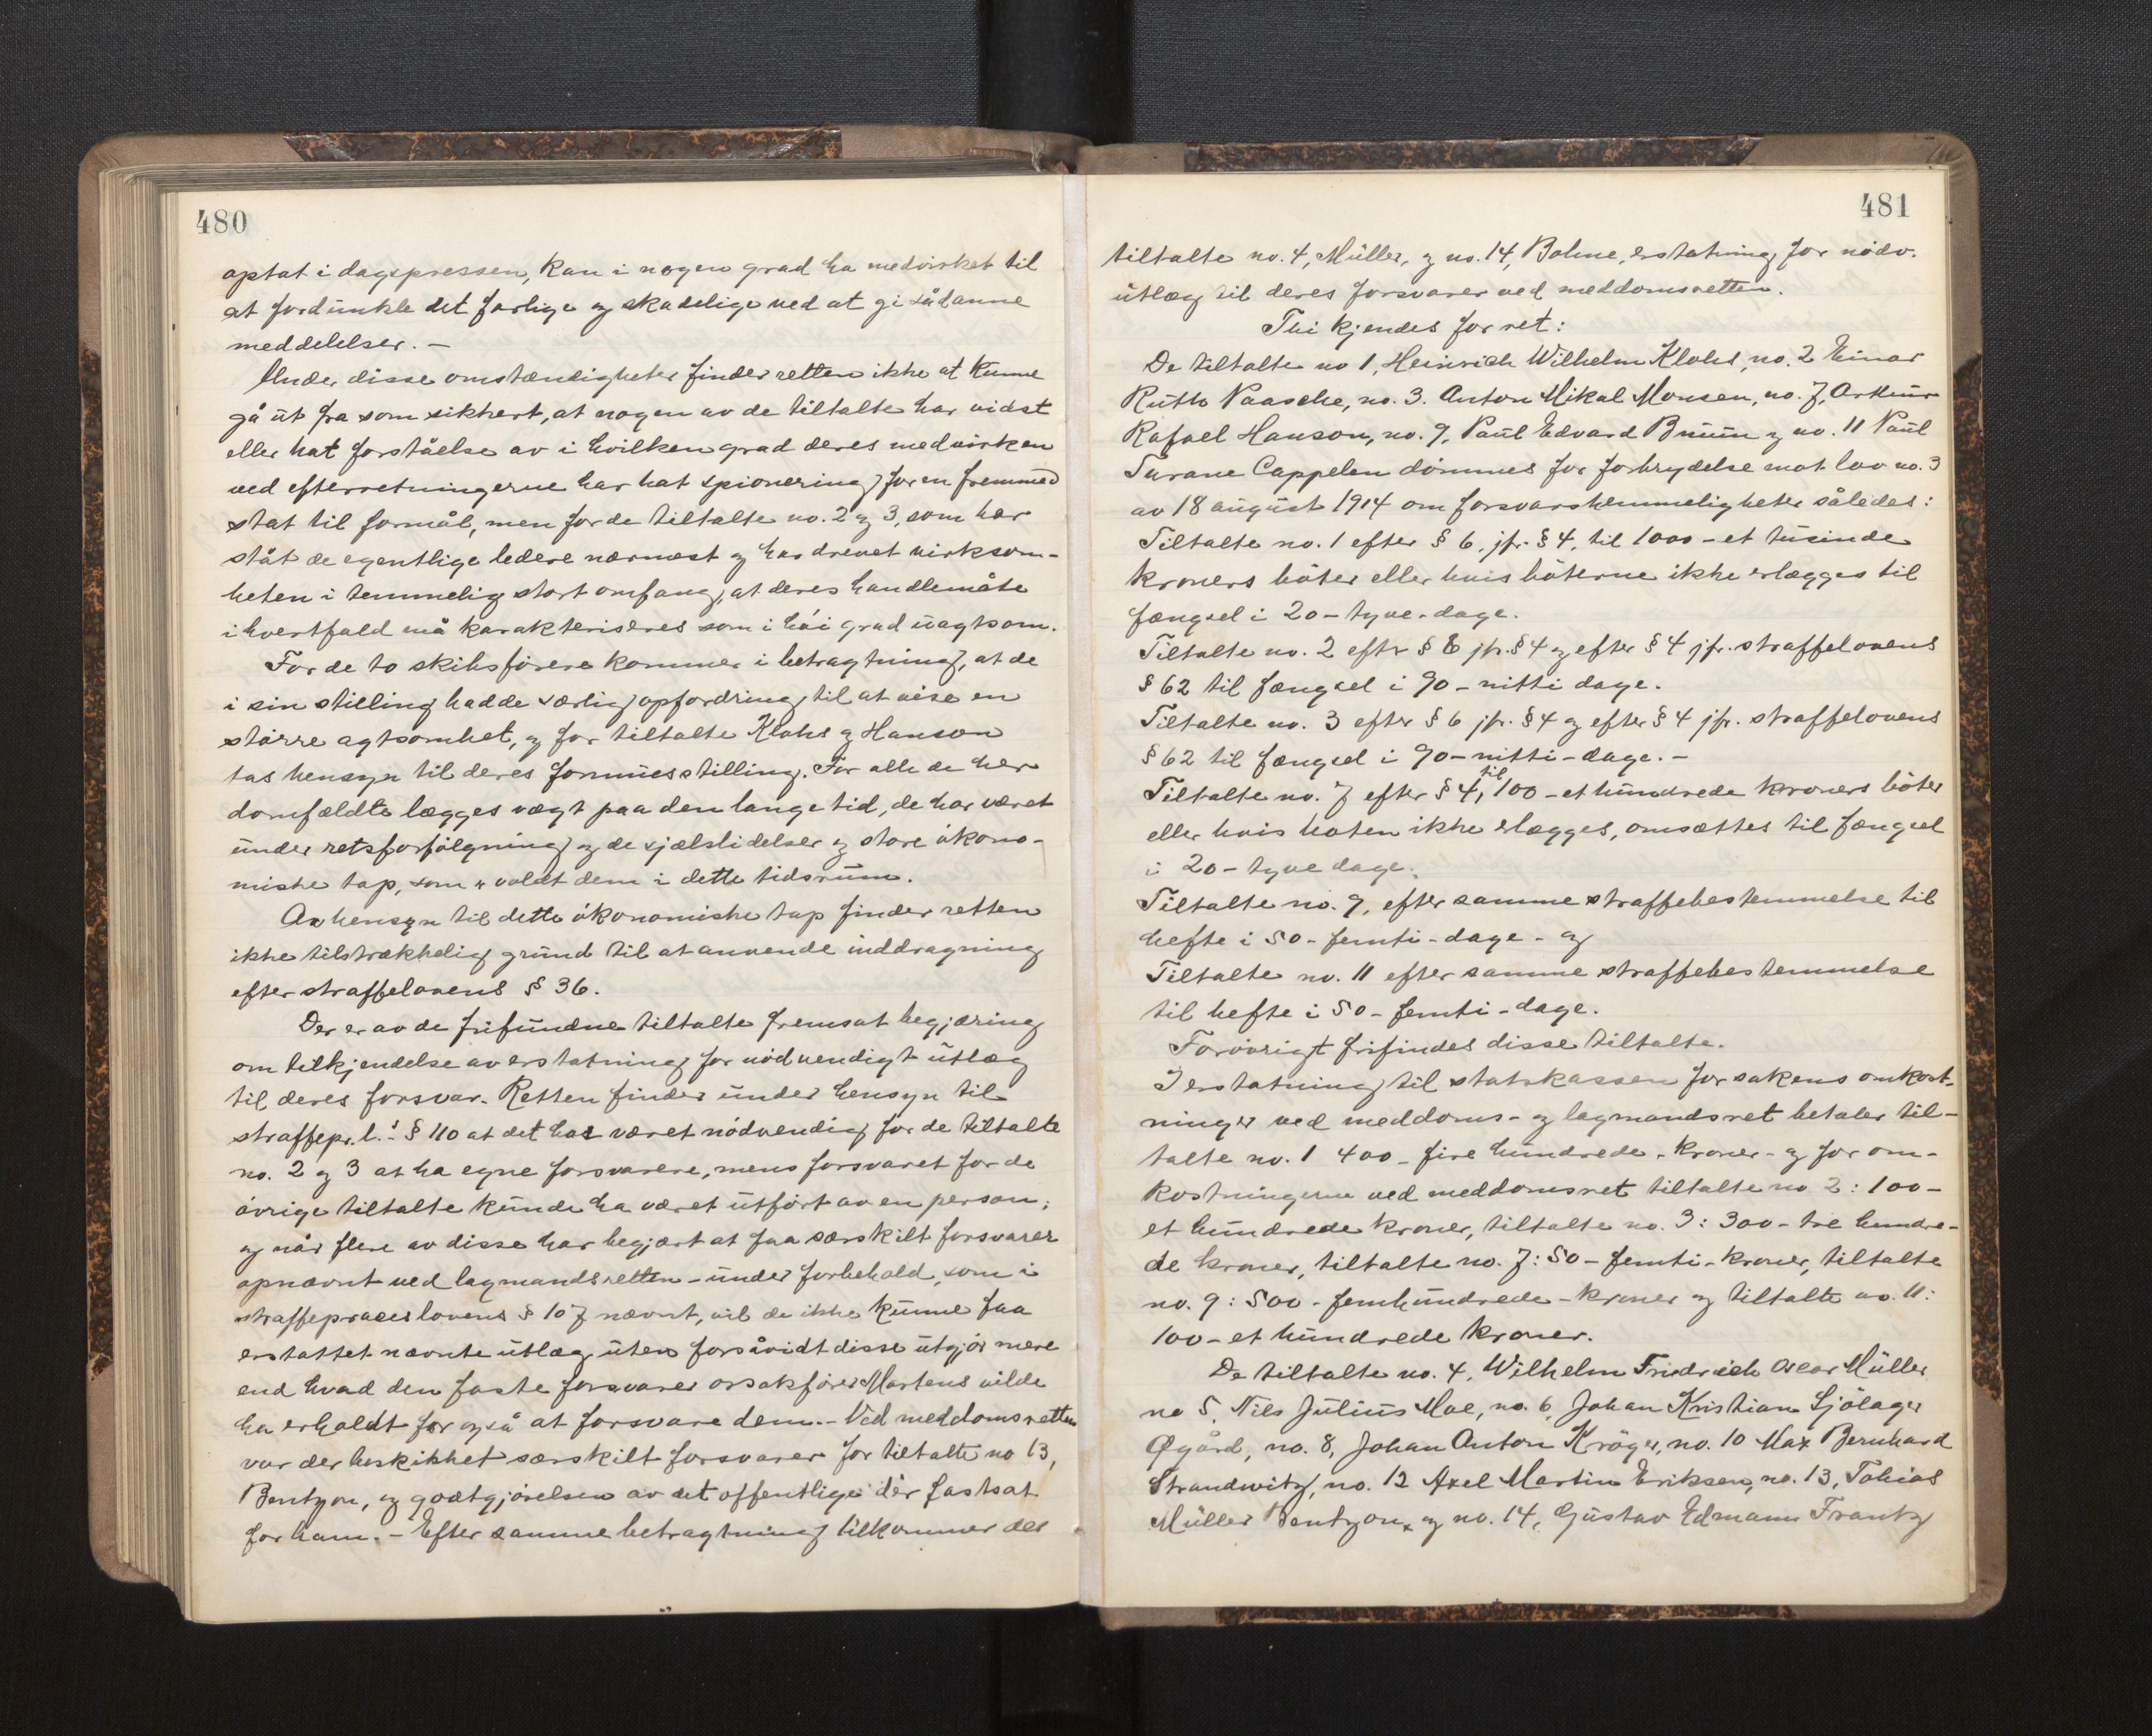 480
optat i dagspressen, kan i nogen grad ha medvirket til
at fordunkle det farlige og skadelige ved at gi sådanne
meddelelser. –
Under disse omstændigheter finder retten ikke at kunne
gå ut fra som sikkert, at nogen av de tiltalte har vidst
eller hat forståelse av i hvilken grad deres medvirken
ved efterretningerne har hat spionering for en fremmed
stat til formål, men for de tiltalte no. 2 og 3, som har
ståt de egentlige ledere nærmest og har drevet virksom-
heten i temmelig stort omfang, at deres handlemåte
ihvertfald må karakteriseres som i høi grad uagtsom.
For de to skibsførere kommer i betragtning, at de
i sin stilling hadde særlig opfordring til at vise en
større agtsomhet, og for tiltalte Klohs og Hanson
tas hensyn til deres formuesstilling. For alle de her
domfældte lægges vægt paa den lange tid, de har været
under retsforfølgning og de sjælslidelser og store økono-
miske tap, som er voldt dem i dette tidsrum.
Av hensyn til dette økonomiske tap finder retten
ikke tilstrækkelig grund til at anvende inddragning
efter straffelovens § 36.
Der er av de frifundne tiltalte fremsat begjæring
om tilkjendelse av erstatning for nødvendigt utlæg
til deres forsvar. Retten finder under hensyn til
straffepr.l.'s § 110 at det har været nødvendig for de tiltalte
no. 2 og 3 at ha egne forsvarere, mens forsvaret for de
øvrige tiltalte kunde ha været utført av en person;
og når flere av disse har begjært at faa særskilt forsvarer
opnævnt ved lagmandsretten – under forbehold, som i
straffeproceslovens § 107 nævnt, vil de ikke kunne faa
erstattet nævnte utlæg uten forsåvidt disse utgjør mere
end hvad den faste forsvarer orsakfører Martens vilde
ha erholdt for også at forsvare dem. – Ved meddomsretten
var der beskikket særskilt forsvarer for tiltalte no 13,
Bentzon, og godtgjørelsen av det offentlige dér fastsat
for ham. – Efter samme betragtning tilkommer der
481
tiltalte no. 4, Müller, og no. 14, Bohne, erstatning for nødv.
utlæg til deres forsvarer ved meddomsretten.
Thi kjendes for ret:
De tiltalte no 1, Heinrich Wilhelm Klohs, no. 2 Einar
Ruth Paasche, no. 3. Anton Mikal Monsen, no. 7, Arthur
Rafael Hanson, no. 9, Paul Edvard Bruun og no. 11 Paul
Turane Cappelen dømmes for forbrydelse mot lov no. 3
av 18 august 1914 om forsvarshemmeligheter således:
Tiltalte no. 1 efter § 6, jfr. § 4, til 1000 – et tusinde
kroners bøter eller hvis bøterne ikke erlægges til
fængsel i 20 – tyve – dage.
Tiltalte no. 2 eftr § 6 jfr. § 4 og efter § 4 jfr. straffelovens
§ 62 til fængsel i 90 – nitti dage.
Tiltalte no. 3 efter § 6 jfr. § 4 og efter § 4 jfr. straffelovens
§ 62 til fængsel i 90 – nitti – dage. –
Tiltalte no. 7 efter § 4, til 100 – et hundrede kroners bøter
eller hvis boten ikke erlægges, omsættes til fængsel
i 20 – tyve dage.
Tiltalte no. 9, efter samme straffebestemmelse til
hefte i 50 – femti – dage – og
Tiltalte no. 11 efter samme straffebestemmelse
til hefte i 50 – femti – dage.
Forøvrigt frifindes disse tiltalte.
I erstatning til statskassen for sakens omkost-
ninger ved meddoms- og lagmandsret betaler til-
talte no. 1 400 – fire hundrede – kroner – og for om-
kostningerne ved meddomsret tiltalte no 2: 100 –
et hundrede kroner, tiltalte no. 3: 300 – tre hundre-
de kroner, tiltalte no. 7: 50 – femti – kroner, tiltalte
no. 9: 500 – femhundrede – kroner og tiltalte no. 11:
100 – et hundrede kroner.
De tiltalte no. 4, Wilhelm Friedrich Oscar Müller
no 5, Nils Julius Moe, no. 6, Johan Kristian Sjölager
Øgård, no. 8, Johan Anton Kröger, no. 10 Max Bernhard
Strandwitz, no. 12 Axel Martin Eriksen, no. 13, Tobias
Müller Bentzon, og no. 14, Gustav Edmann Frantz